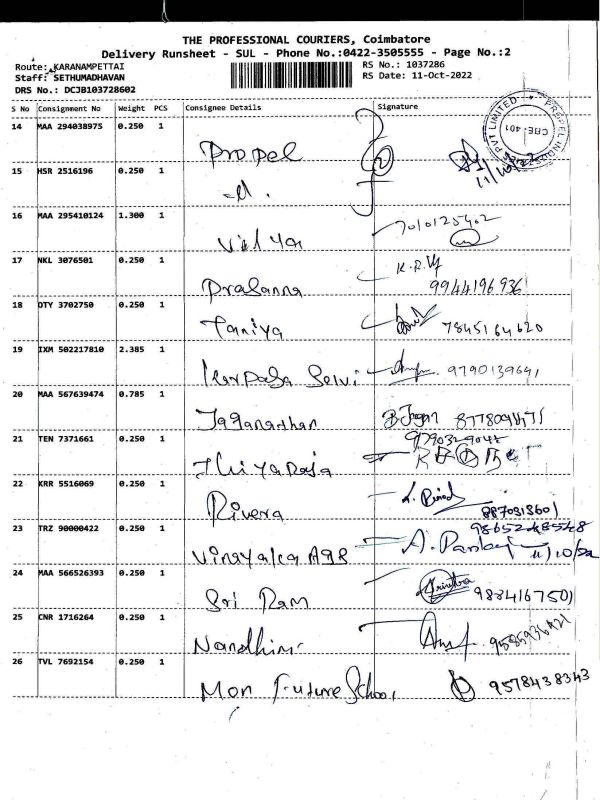 THE PROFESSIONAL COURIERS, Coimbatore
Delivery Runsheet - SUL - Phone No.:0422-3505555 - Page No.:2
Route: KARANAMPETTAI
RS No.: 1037286
Staff: SETHUMADHAVAN
RS Date: 11-Oct-2022
DRS No.: DCJB103728602
S No Consignment No Weight PCS Consignee Details Signature
14 MAA 294038975 0.250 1 Propel
15 HSR 2516196 0.250 1 -11-
16 MAA 295410124 1.300 1 Vidya 7010125402
17 NKL 3076501 0.250 1 Prasanna K.R.
9944196936
18 OTY 3702750 0.250 1 Taniya 7845164620
19 IXM 502217810 2.385 1 Selvi 9790139641
20 MAA 567639474 0.785 1 Jaganadhan B Jagan
21 TEN 7371661 0.250 1 Thiyaraja
22 KRR 5516069 0.250 1 Rivera
23 TRZ 90000422 0.250 1 Vinayalca Ags A. 11/10/22
24 MAA 566526393 0.250 1 Sri Ram 9884167501
25 CNR 1716264 0.250 1 Nandhini
26 TVL 7692154 0.250 1 Mon Future School 9578438343
PVT LIMITED
PROPEL
CBE 401